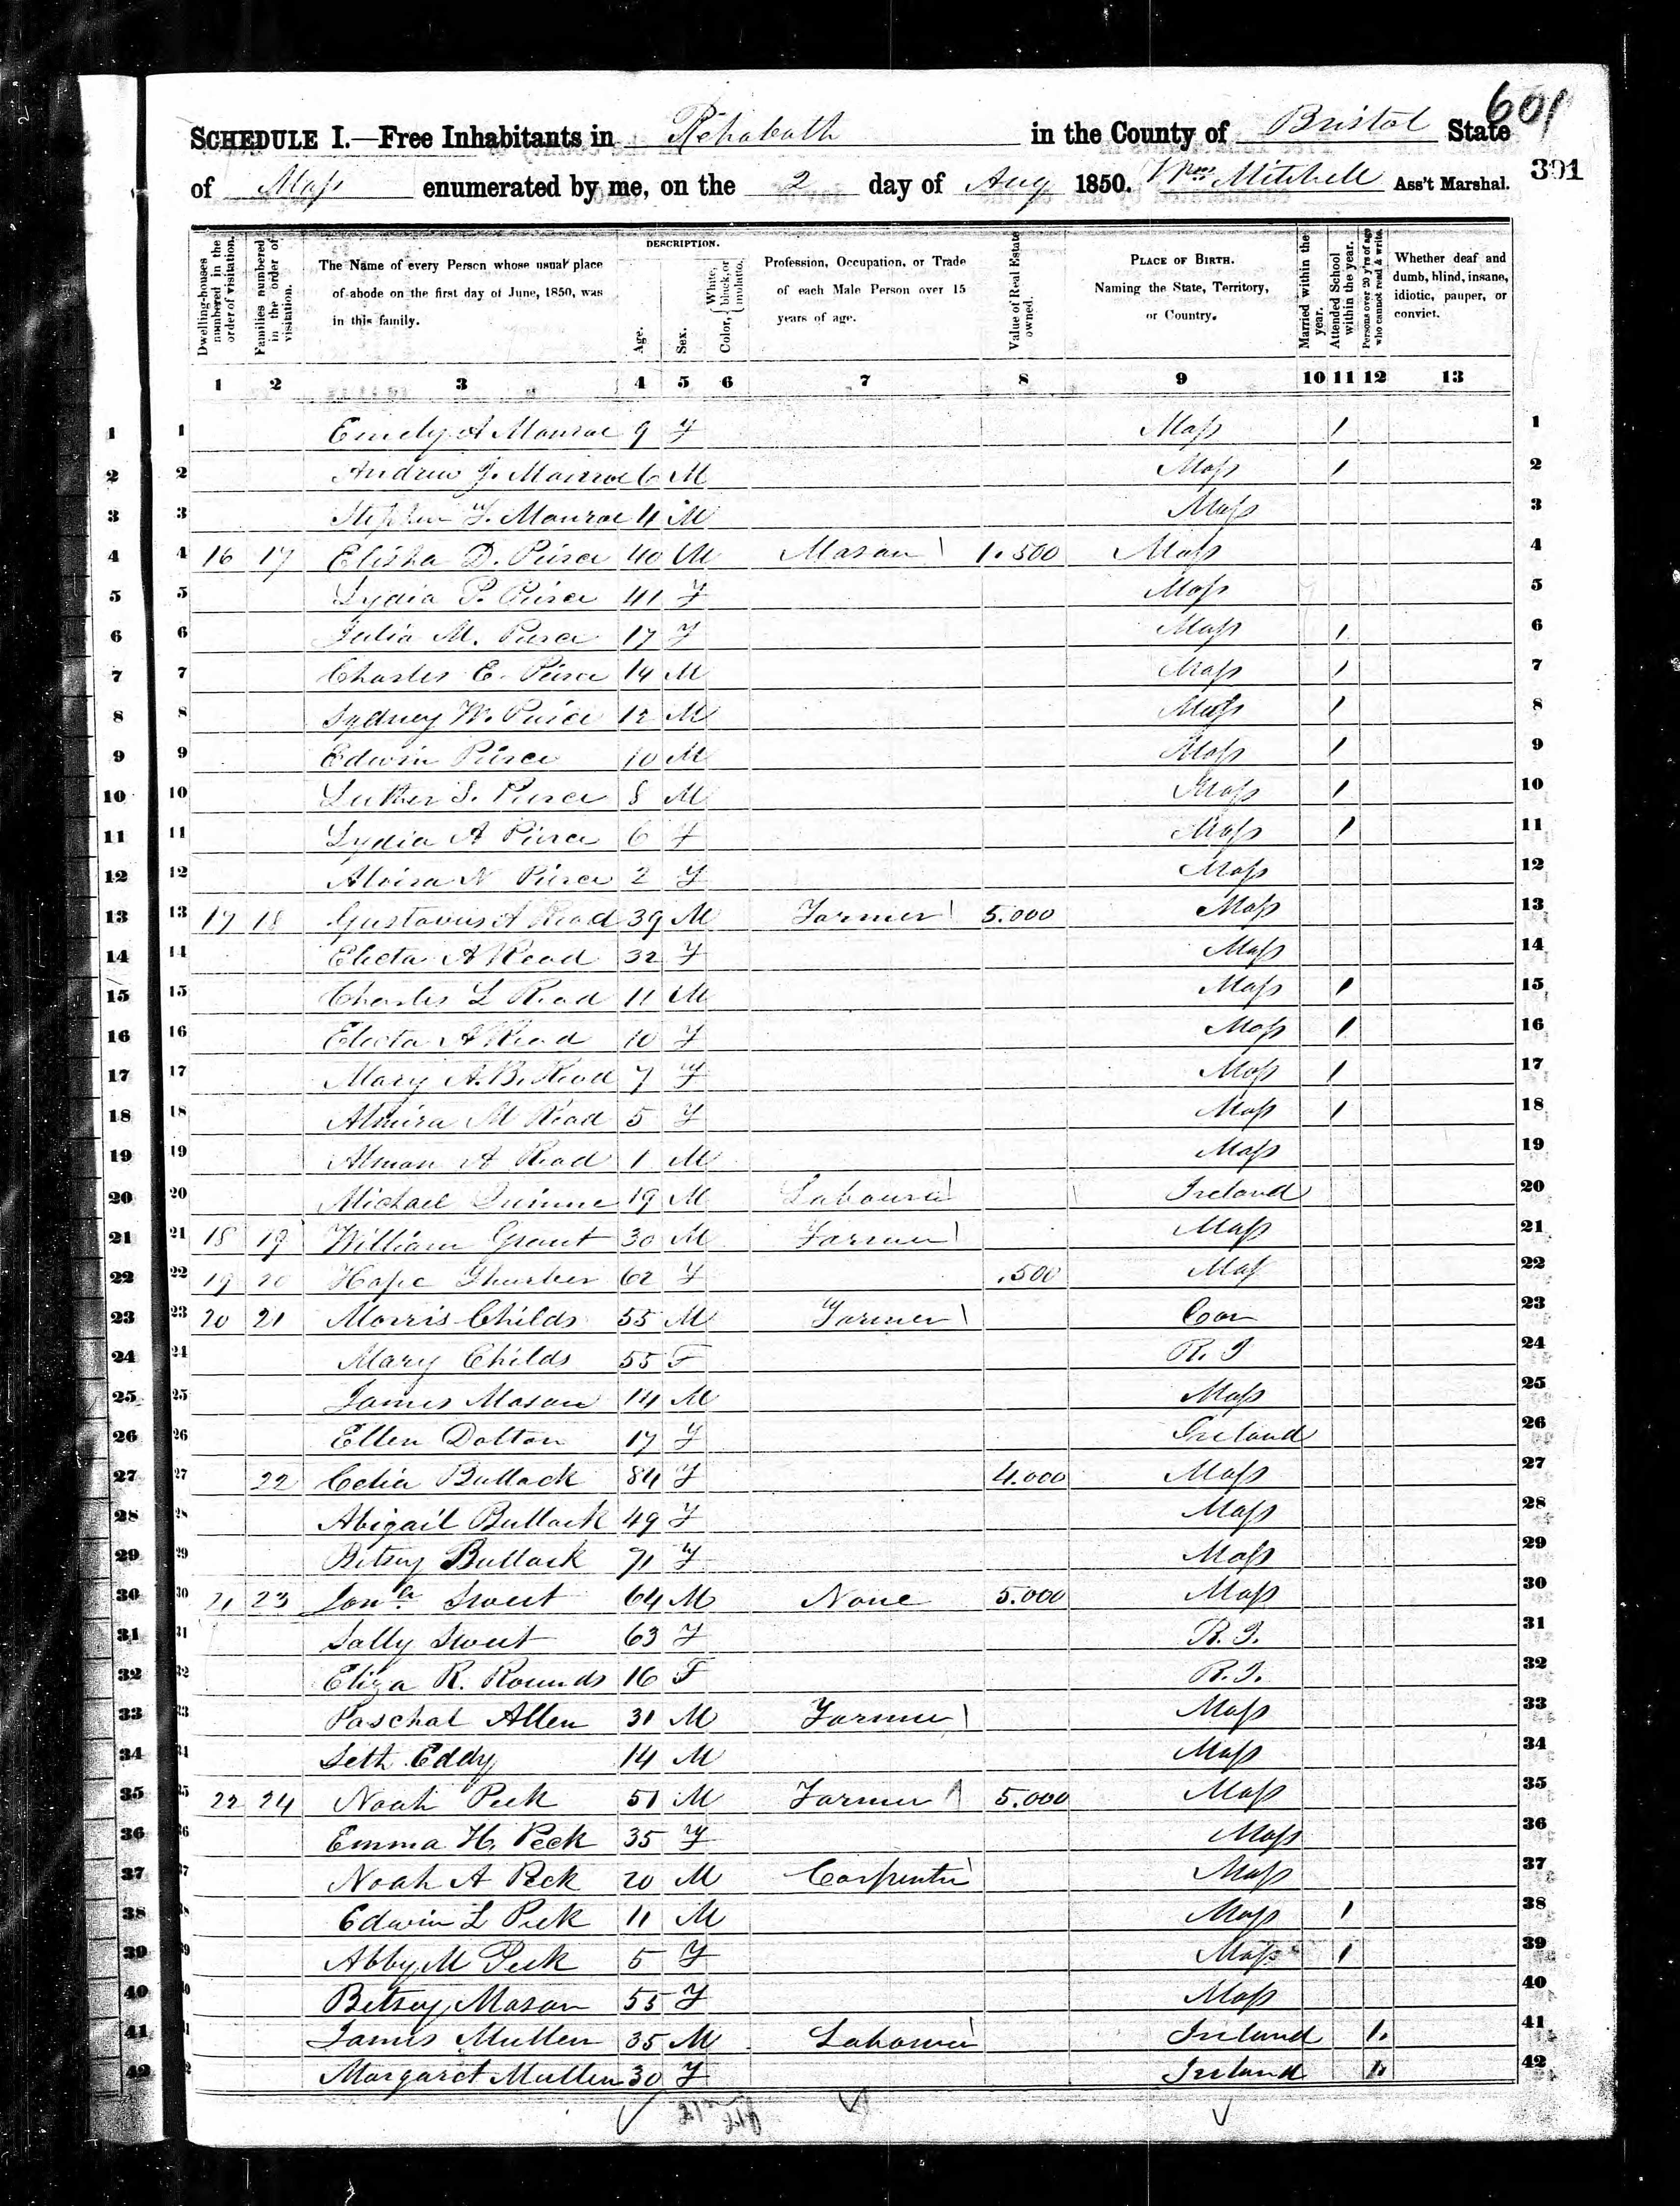 601
SCHEDULE I.—Free Inhabitants in Rehoboth in the County of Bristol State
of Mass enumerated by me, on the 2 day of Aug 1850. Wm Mitchell Ass't Marshal. 301
Dwelling-houses numbered in the order of visitation.
Families numbered in the order of visitation.
The Name of every Person whose usual place of abode on the first day of June, 1850, was in this family.
DESCRIPTION.
Age.
Sex.
Color, White, black, or mulatto.
Profession, Occupation, or Trade of each Male Person over 15 years of age.
Value of Real Estate owned.
PLACE OF BIRTH. Naming the State, Territory, or Country.
Married within the year.
Attended School within the year.
Persons over 20 y'rs of age who cannot read & write.
Whether deaf and dumb, blind, insane, idiotic, pauper, or convict.
1 2 3 4 5 6 7 8 9 10 11 12 13
1 1 Emely A Monroe 9 F Mass 1 1
2 2 Andrew J. Monroe 6 M Mass 1 2
3 3 Stephen F. Monroe 4 M Mass 3
4 4 16 17 Elisha D. Pierce 40 M Mason 1.500 Mass 4
5 5 Lydia P. Pierce 41 F Mass 5
6 6 Julia M. Pierce 17 F Mass 1 6
7 7 Charles E. Pierce 14 M Mass 1 7
8 8 Sydney W. Pierce 12 M Mass 1 8
9 9 Edwin Pierce 10 M Mass 1 9
10 10 Luther S. Pierce 8 M Mass 1 10
11 11 Lydia A Pierce 6 F Mass 1 11
12 12 Alvira N Pierce 2 F Mass 12
13 13 17 18 Gustavus A Read 39 M Farmer 5.000 Mass 13
14 14 Electa A Read 32 F Mass 14
15 15 Charles L Read 11 M Mass 1 15
16 16 Electa A Read 10 F Mass 1 16
17 17 Mary A. B. Read 7 F Mass 1 17
18 18 Almira M Read 5 F Mass 1 18
19 19 Alman A Read 1 M Mass 19
20 20 Michael Quinne 19 M Labourer Ireland 20
21 21 18 19 William Grant 30 M Farmer Mass 21
22 22 19 20 Hope Thurber 62 F .500 Mass 22
23 23 20 21 Morris Childs 55 M Farmer Con 23
24 24 Mary Childs 55 F R. I 24
25 25 James Mason 14 M Mass 25
26 26 Ellen Dolton 17 F Ireland 26
27 27 22 Celia Bullock 84 F 4.000 Mass 27
28 28 Abigail Bullock 49 F Mass 28
29 29 Betsey Bullock 71 F Mass 29
30 30 21 23 Jona Sweet 64 M None 5.000 Mass 30
31 31 Sally Sweet 63 F R. I. 31
32 32 Eliza R. Rounds 16 F R. I. 32
33 33 Paschal Allen 31 M Farmer Mass 33
34 34 Seth Eddy 14 M Mass 34
35 35 22 24 Noah Peck 51 M Farmer 5.000 Mass 35
36 36 Emma H. Peck 35 F Mass 36
37 37 Noah A Peck 20 M Carpenter Mass 37
38 38 Edwin L Peck 11 M Mass 1 38
39 39 Abby M Peck 5 F Mass 1 39
40 40 Betsey Mason 55 F Mass 40
41 41 James Mullen 35 M Labourer Ireland 1. 41
42 42 Margaret Mullen 30 F Ireland 1. 42